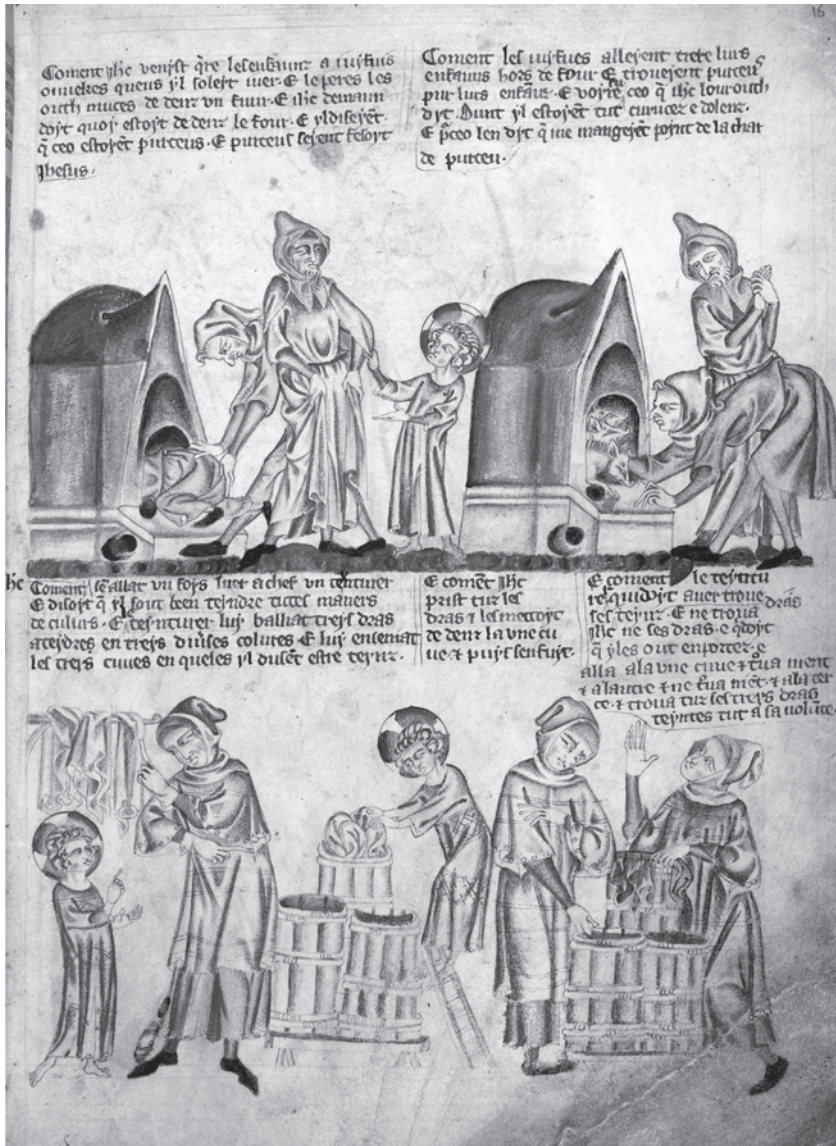 16
Coment ihc venist qre les enfaunz a iuifuis
ou iuekes queus yl soleyt iuer. E le peres les
outh muces de denz un furn. E ihc demaun
doyt quoy estoyt de denz le four. E yl diseyent
q ceo estoyent purceus. E purceus seyent fesoyt
Ihesus.
Coment les iuyfues alleyent trere lurs
enfauns hors de four E troueyent purceus
pur lurs enfauz. E voyre fu ceo q ihc lour outh
dyt. Dunt yl estoyent tut curucez e dolenz.
E p ceo len dyt q ine mangeyent poynt de la char
de purceu.
ihc
Coment sen allat un foys iuer a chef un teinturer
E disoyt q yl sout been teyndre tuttes maners
de culurs. E le teynturer luy balhat treys dras
a teyndres en treys diuises colures E luy enseniat
les treys cuues en queles yl dusent estre teynz.
E coment ihc
prist tuz les
dras & les mettoyt
de denz la une cu
ue & puys sen fuyt.
E coment le teyntu
rer quidoyt auer troue
ses teynz dras. E ne troua
ihc ne ses dras. e qdoyt
q yl les out enportez. e
alla a la une cuue & troua nient
& a lautre & ne troua nient. & a la ter
ce. & troua tuz ses treys dras
teyntes tut a sa volunte.